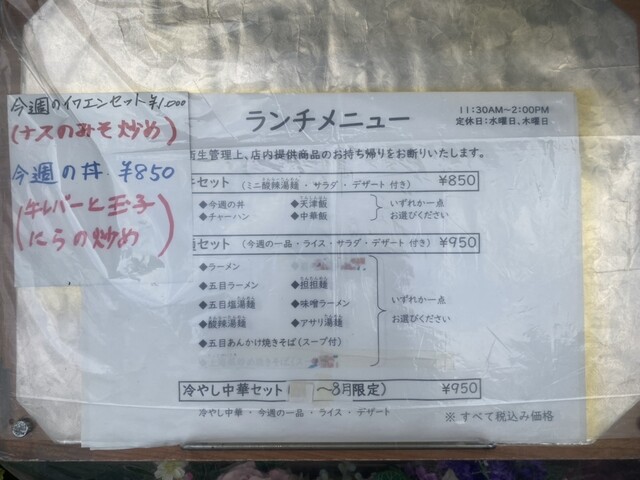 今週のイワエンセット ¥1,000
(ナスのみそ炒め)
今週の丼 ¥850
(牛レバーと玉子
にらの炒め)
ランチメニュー
11:30AM~2:00PM
定休日:水曜日、木曜日
生管理上、店内提供商品のお持ち帰りをお断りいたします。
セット (ミニ酸辣湯麺・サラダ・デザート 付き) ¥850
◆今週の丼 ◆天津飯
◆チャーハン ◆中華飯
いずれか一点
お選びください
セット (今週の一品・ライス・サラダ・デザート 付き) ¥950
◆ラーメン
◆五目ラーメン ◆担担麺
◆五目塩湯麺 ◆味噌ラーメン
◆酸辣湯麺 ◆アサリ湯麺
◆五目あんかけ焼きそば(スープ付)
いずれか一点
お選びください
冷やし中華セット ( ~8月限定) ¥950
冷やし中華・今週の一品・ライス・デザート
※ すべて税込み価格